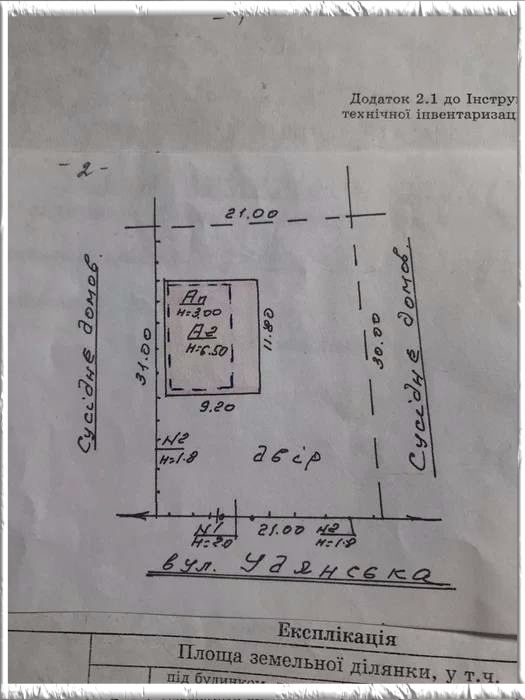 Додаток 2.1 до Інстру
технічної інвентаризац
- 2 -
21.00
Сусіднє домов.
Ап
H=3.00
А2
H=6.50
11.80
31.00
30.00
Сусіднє домов.
9.20
N2
H=1.8
двір
N1
H=2.0
21.00
N2
H=1.8
вул. Удянська
Експлікація
Площа земельної ділянки, у т.ч.
під будинком